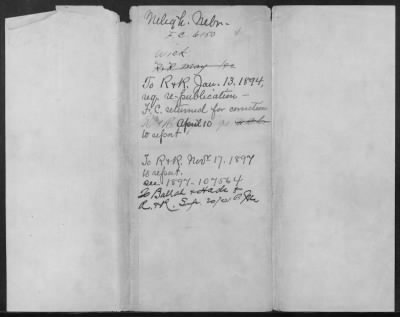 Neligh, Nebr.
F.C. 6150
Wick
To R & R. Jan. 13. 1894,
req. re-publication –
F.C. returned for correction
April 10
to report,
To R & R. Nov. 17. 1897
to report.
see 1897-107564
To Ballah &
R. & R. Sep.